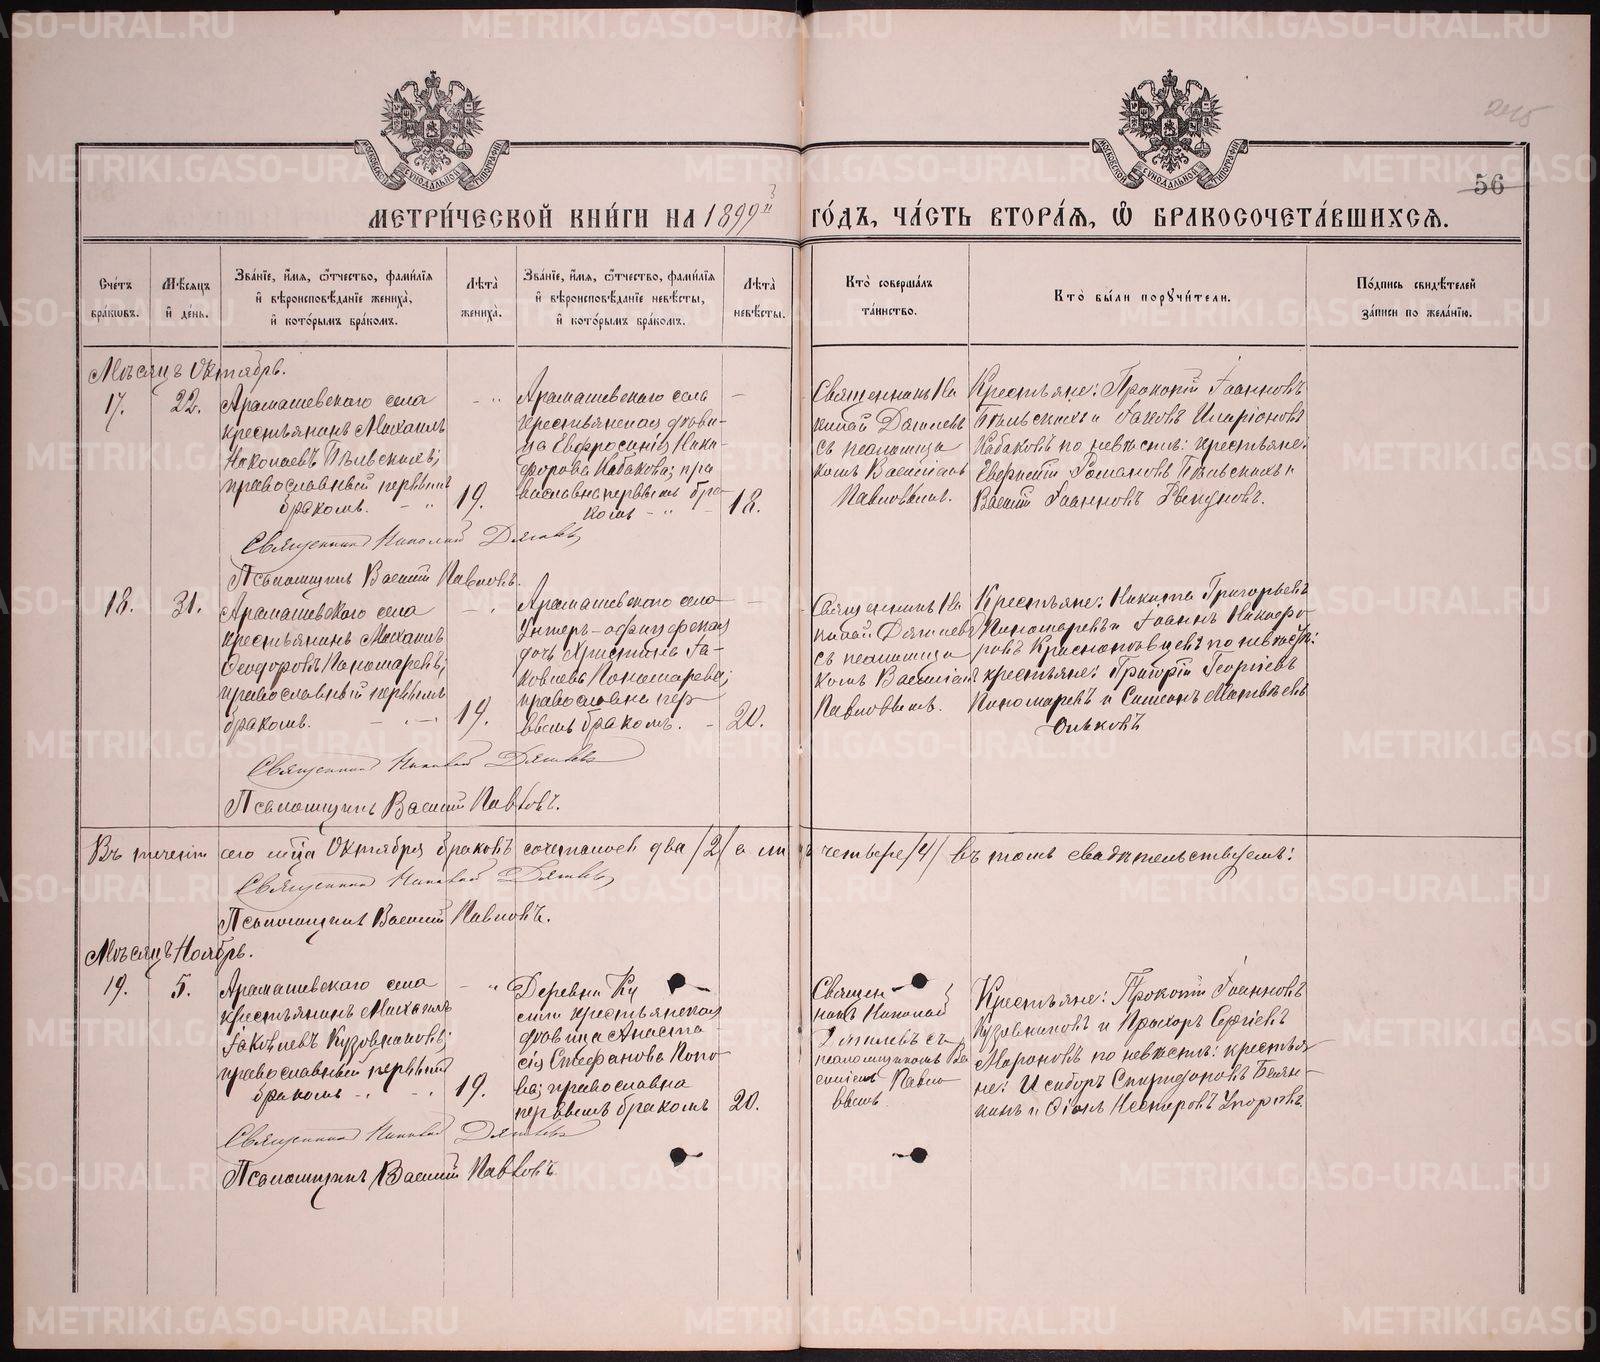 56
МЕТРИ́ЧЕСКОЙ КНИ́ГИ НА 1899 ГО́ДЪ, ЧА́СТЬ ВТОРА́Я, Ѿ БРАКОСОЧЕТА́ВШИХСЯ.
Сче́тъ бра́ковъ.
Мѣ́сяцъ и҆ де́нь.
Зва́нїе, и҆́мя, ѻ҆́тчество, фами́лїя и҆ вѣроисповѣ́данїе жениха̀, и҆ кото́рымъ бра́комъ.
Лѣ́та жениха̀.
Зва́нїе, и҆́мя, ѻ҆́тчество, фами́лїя и҆ вѣроисповѣ́данїе невѣ́сты, и҆ кото́рымъ бра́комъ.
Лѣ́та невѣ́сты.
Кто̀ соверша́лъ та́инство.
Кто̀ бы́ли поручи́тели.
По́дпись свидѣ́телей за́писи по жела́нїю.
Мѣсяцъ Октябрь.
17.
22.
Арамашевскаго села
крестьянинъ Михаилъ
Николаевъ Пѣльскихъ;
православный первымъ
бракомъ.
19.
Арамашевскаго села
крестьянская дѣви-
ца Евфросинія Ники-
форова Кабакова; пра
вославна первымъ бра-
комъ
18.
Священникъ Ни
колай Дягилевъ
съ псаломщи
комъ Василіемъ
Павловымъ.
Крестьяне: Прокопій Іоанновъ
Пѣльскихъ и Іаковъ Иларіоновъ
Кабаковъ по невѣстѣ: крестьяне:
Романовъ Пѣльскихъ и
Василій Іоанновъ
Священникъ Николай Дягилевъ
Псаломщикъ Василій Павловъ.
18.
31.
Арамашевскаго села
крестьянинъ Михаилъ
Ѳеодоровъ Пономаревъ;
православный первымъ
бракомъ.
19.
Арамашевскаго села
Унтеръ-офицерская
дочь Христина Іа-
ковлева Пономарева;
православна пер-
вымъ бракомъ.
20.
Священникъ Ни
колай Дягилевъ
съ псаломщи
комъ Василіемъ
Павловымъ.
Крестьяне: Никита Григорьевъ
Пономаревъ и Іоаннъ Никифо-
ровъ по невѣстѣ:
крестьяне: Григорій Георгіевъ
Пономаревъ и Симеонъ Матвѣевъ
Ольковъ
Священникъ Николай Дягилевъ
Псаломщикъ Василій Павловъ.
Въ теченіи сего мѣсяца Октября браковъ сочталось два /2/ а лицъ четыре /4/ въ томъ свидѣтельствуемъ:
Священникъ Николай Дягилевъ
Псаломщикъ Василій Павловъ.
Мѣсяцъ Ноябрь.
19.
5.
Арамашевскаго села
крестьянинъ Михаилъ
Іаковлевъ Кузовниковъ;
православный первымъ
бракомъ
19.
Деревни
крестьянская
дѣвица Анаста-
сія Стефанова Попо-
ва; православна
первымъ бракомъ
20.
Священ
никъ Николай
Дягилевъ съ
псаломщикомъ Ва
силіемъ Павло
вымъ
Крестьяне: Прокопій Іоанновъ
Кузовниковъ и Прохоръ Сергіевъ
по невѣстѣ: крестья-
не: Исидоръ Спиридоновъ
и Нестеровъ
Священникъ Николай Дягилевъ
Псаломщикъ Василій Павловъ.
METRIKI.GASO-URAL.RU